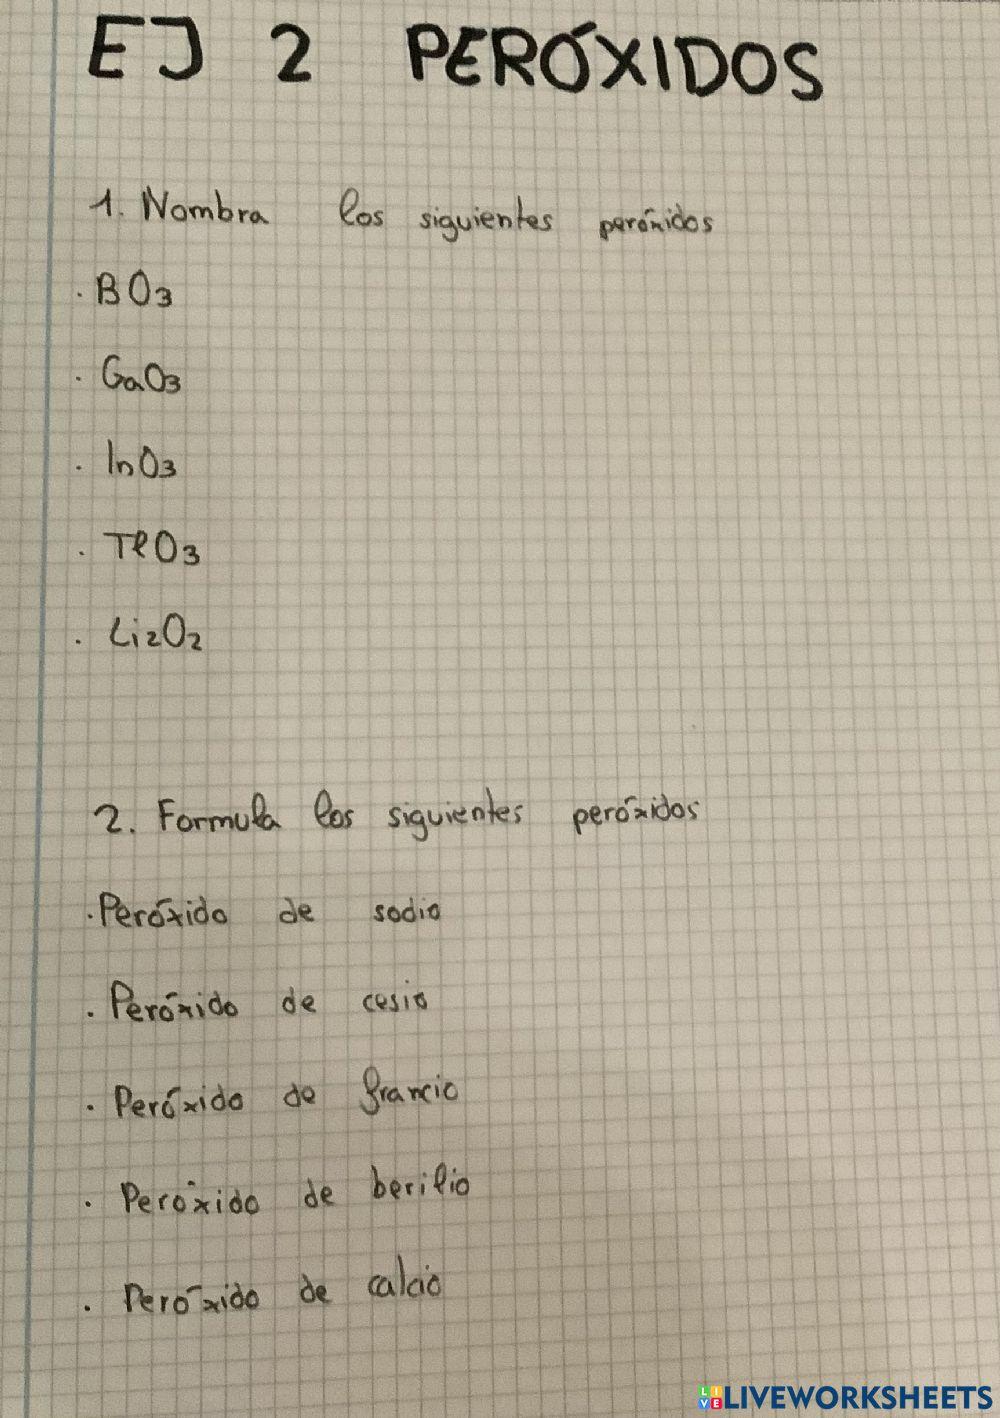 EJ 2 PERÓXIDOS
1. Nombra los siguientes peróxidos
· BO3
· GaO3
· InO3
· TlO3
· Li2O2
2. Formula los siguientes peróxidos
· Peróxido de sodio
· Peróxido de cesio
· Peróxido de francio
· Peróxido de berilio
· Peróxido de calcio
LIVEWORKSHEETS